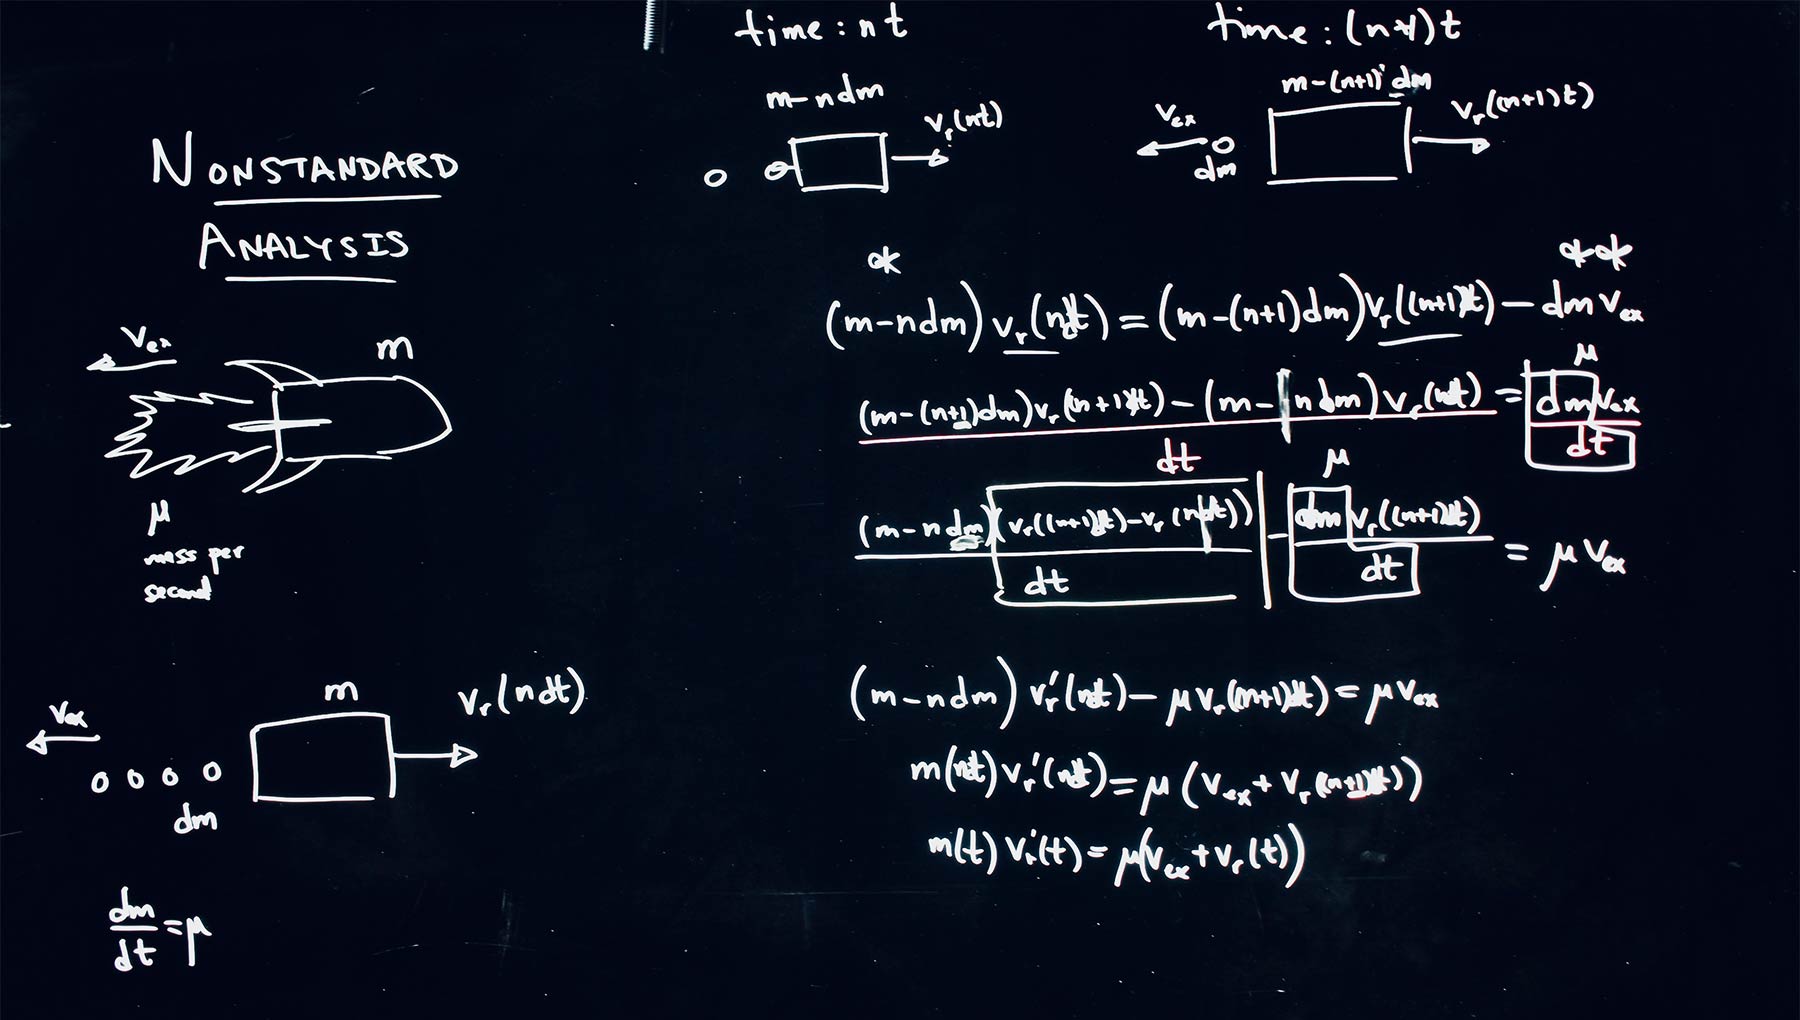 NONSTANDARD
ANALYSIS
v_ex
m
μ
mass per
second
v_ex
m
v_r(ndt)
dm
dm/dt = μ
time: nt
m-ndm
v_r(nt)
time: (n+1)t
m-(n+1)dm
v_ex
dm
v_r((n+1)t)
*
**
(m-ndm) v_r(ndt) = (m-(n+1)dm) v_r((n+1)dt) - dm v_ex
μ
(m-(n+1)dm) v_r(n+1)dt) - (m- ndm) v_r(ndt) / dt = dm v_ex / dt
μ
(m-ndm)(v_r((n+1)dt)-v_r(ndt)) / dt - dm v_r((n+1)dt) / dt = μ v_ex
(m-ndm) v_r'(ndt) - μ v_r((n+1)dt) = μ v_ex
m(ndt) v_r'(ndt) = μ (v_ex + v_r((n+1)dt))
m(t) v_r'(t) = μ(v_ex + v_r(t))